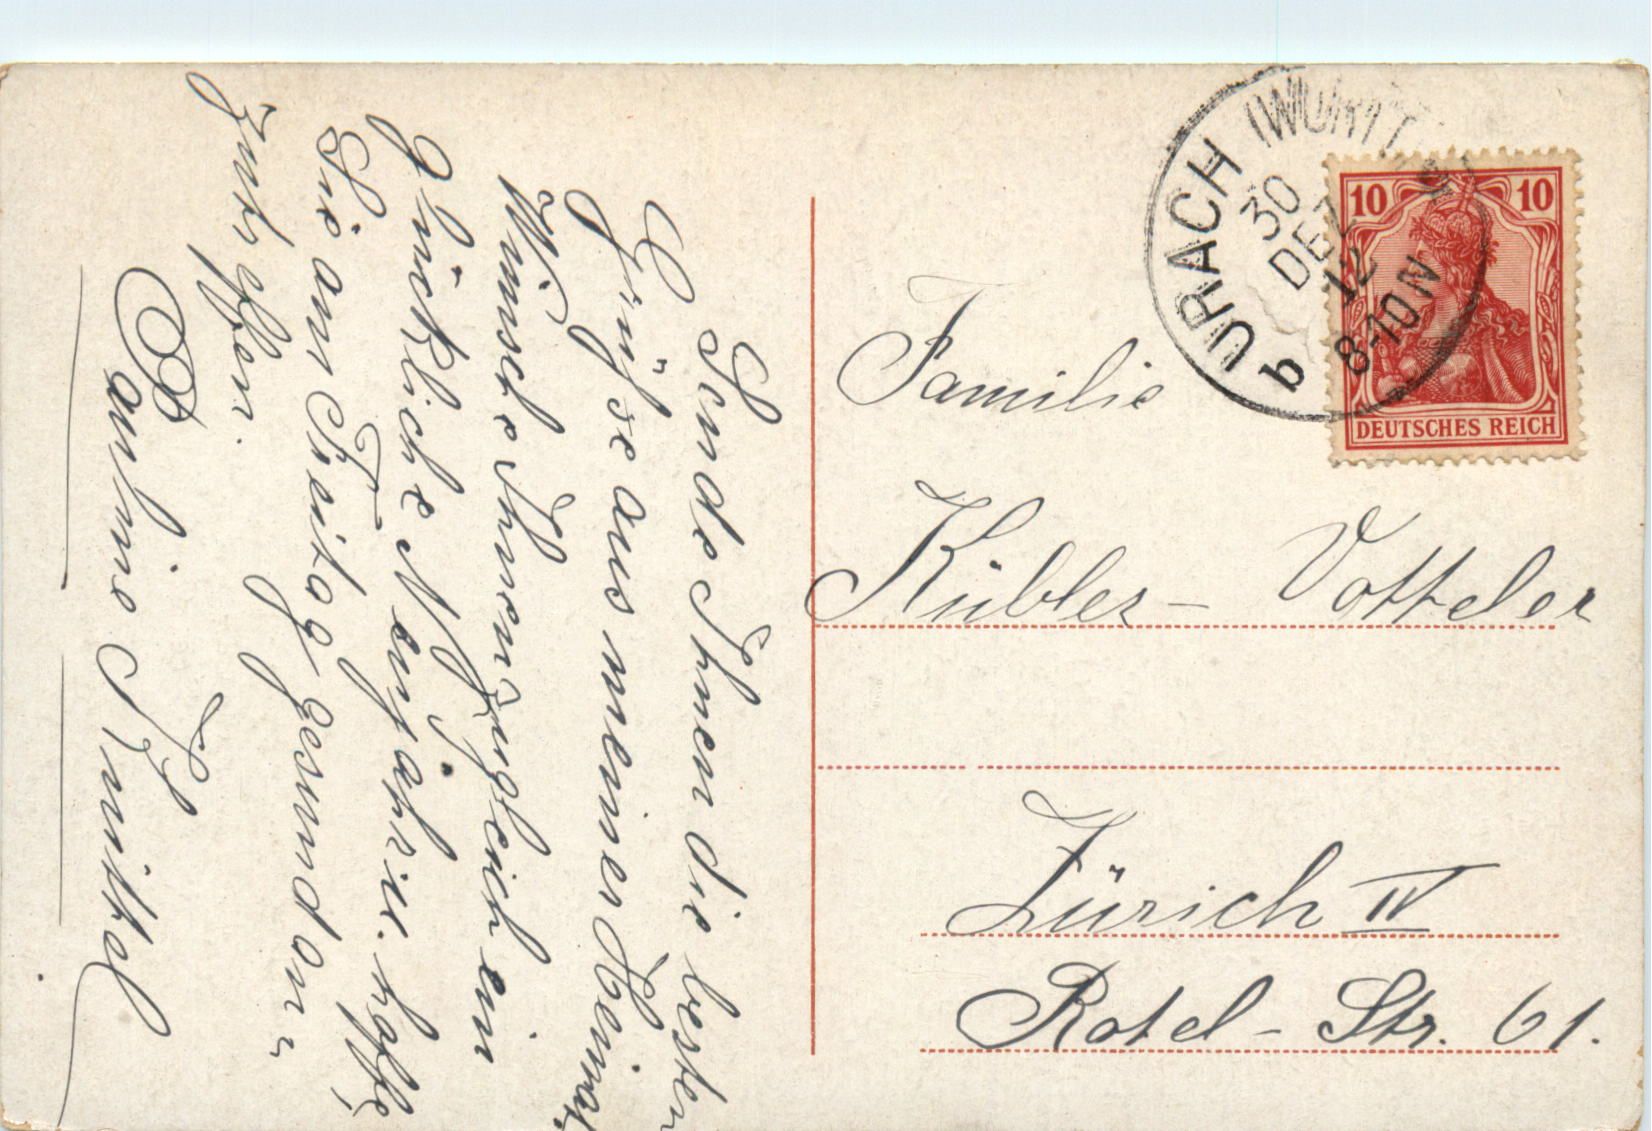 Sende Ihnen die besten
Grüße aus meiner Heimat,
Wünsche Ihnen zugleich ein
glückliche Neujahre. hoffe,
Sie am Freitag gesund an-
zutreffen.
Pauline Knittel
URACH (WÜRTT.)
30
DEZ
12
8-10 N
b
10 10
DEUTSCHES REICH
Familie
Kübler - Votteler
Zürich IV
Rotel - Str. 61.